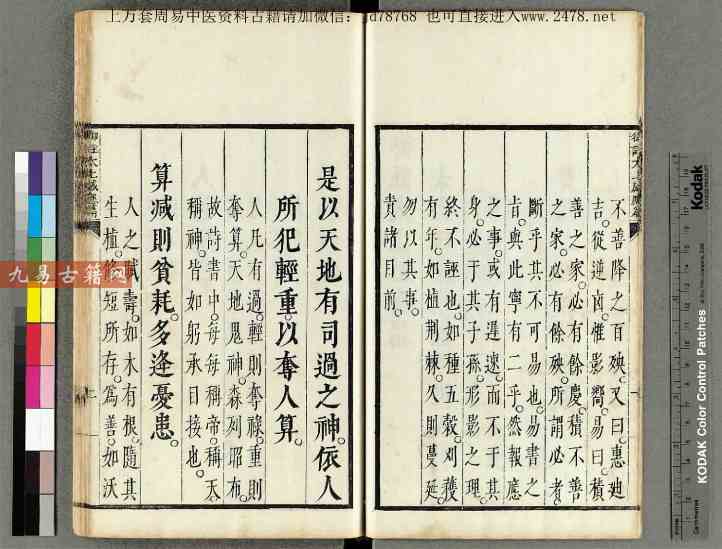 上万套周易中医资料古籍请加微信： d78768 也可直接进入www.2478.net
不善降之百殃。又曰。惠廸
吉。從逆凶。惟影響。易曰。積
善之家。必有餘慶。積不善
之家。必有餘殃。所謂必者
斷乎其不可易也。易書之
旨。與此寧有二乎。然報應
之事。或有遲速。而不于其
身。必于其子孫。形影之理。
終不誣也。如種五穀。刈穫
有年。如植荆棘。久則蔓延。
勿以其事。
責諸目前。
是以天地有司過之神。依人
所犯輕重。以奪人算。
人凡有過。輕則奪祿。重則
奪算。天地鬼神。森列昭布。
故詩書中。每每稱帝。稱天。
稱神。皆如躬承目接也。
算減則貧耗。多逢憂患。
人之賦壽。如木有根。隨其
生植。脩短所存。爲善。如沃
九易古籍网
Kodak
KODAK Color Control Patches